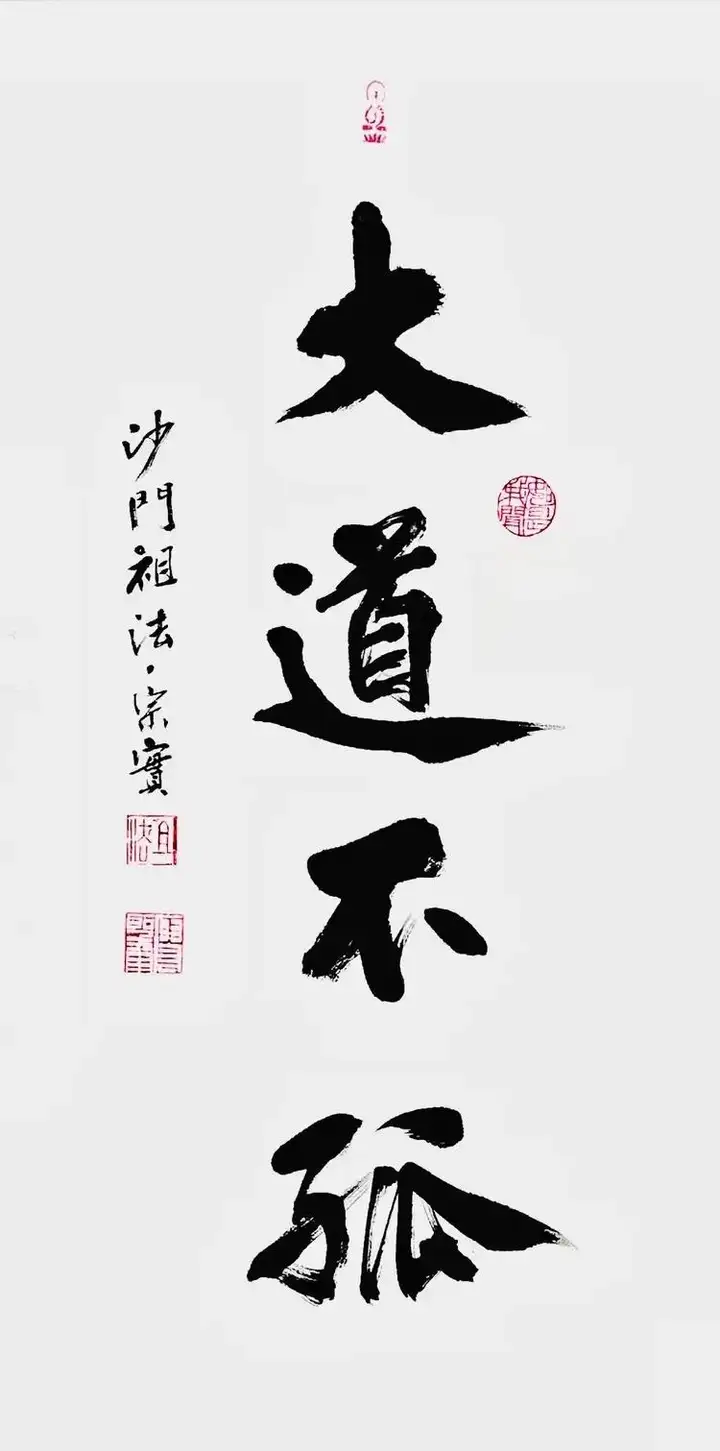 大道不孤
沙門祖法·宗實
祖法